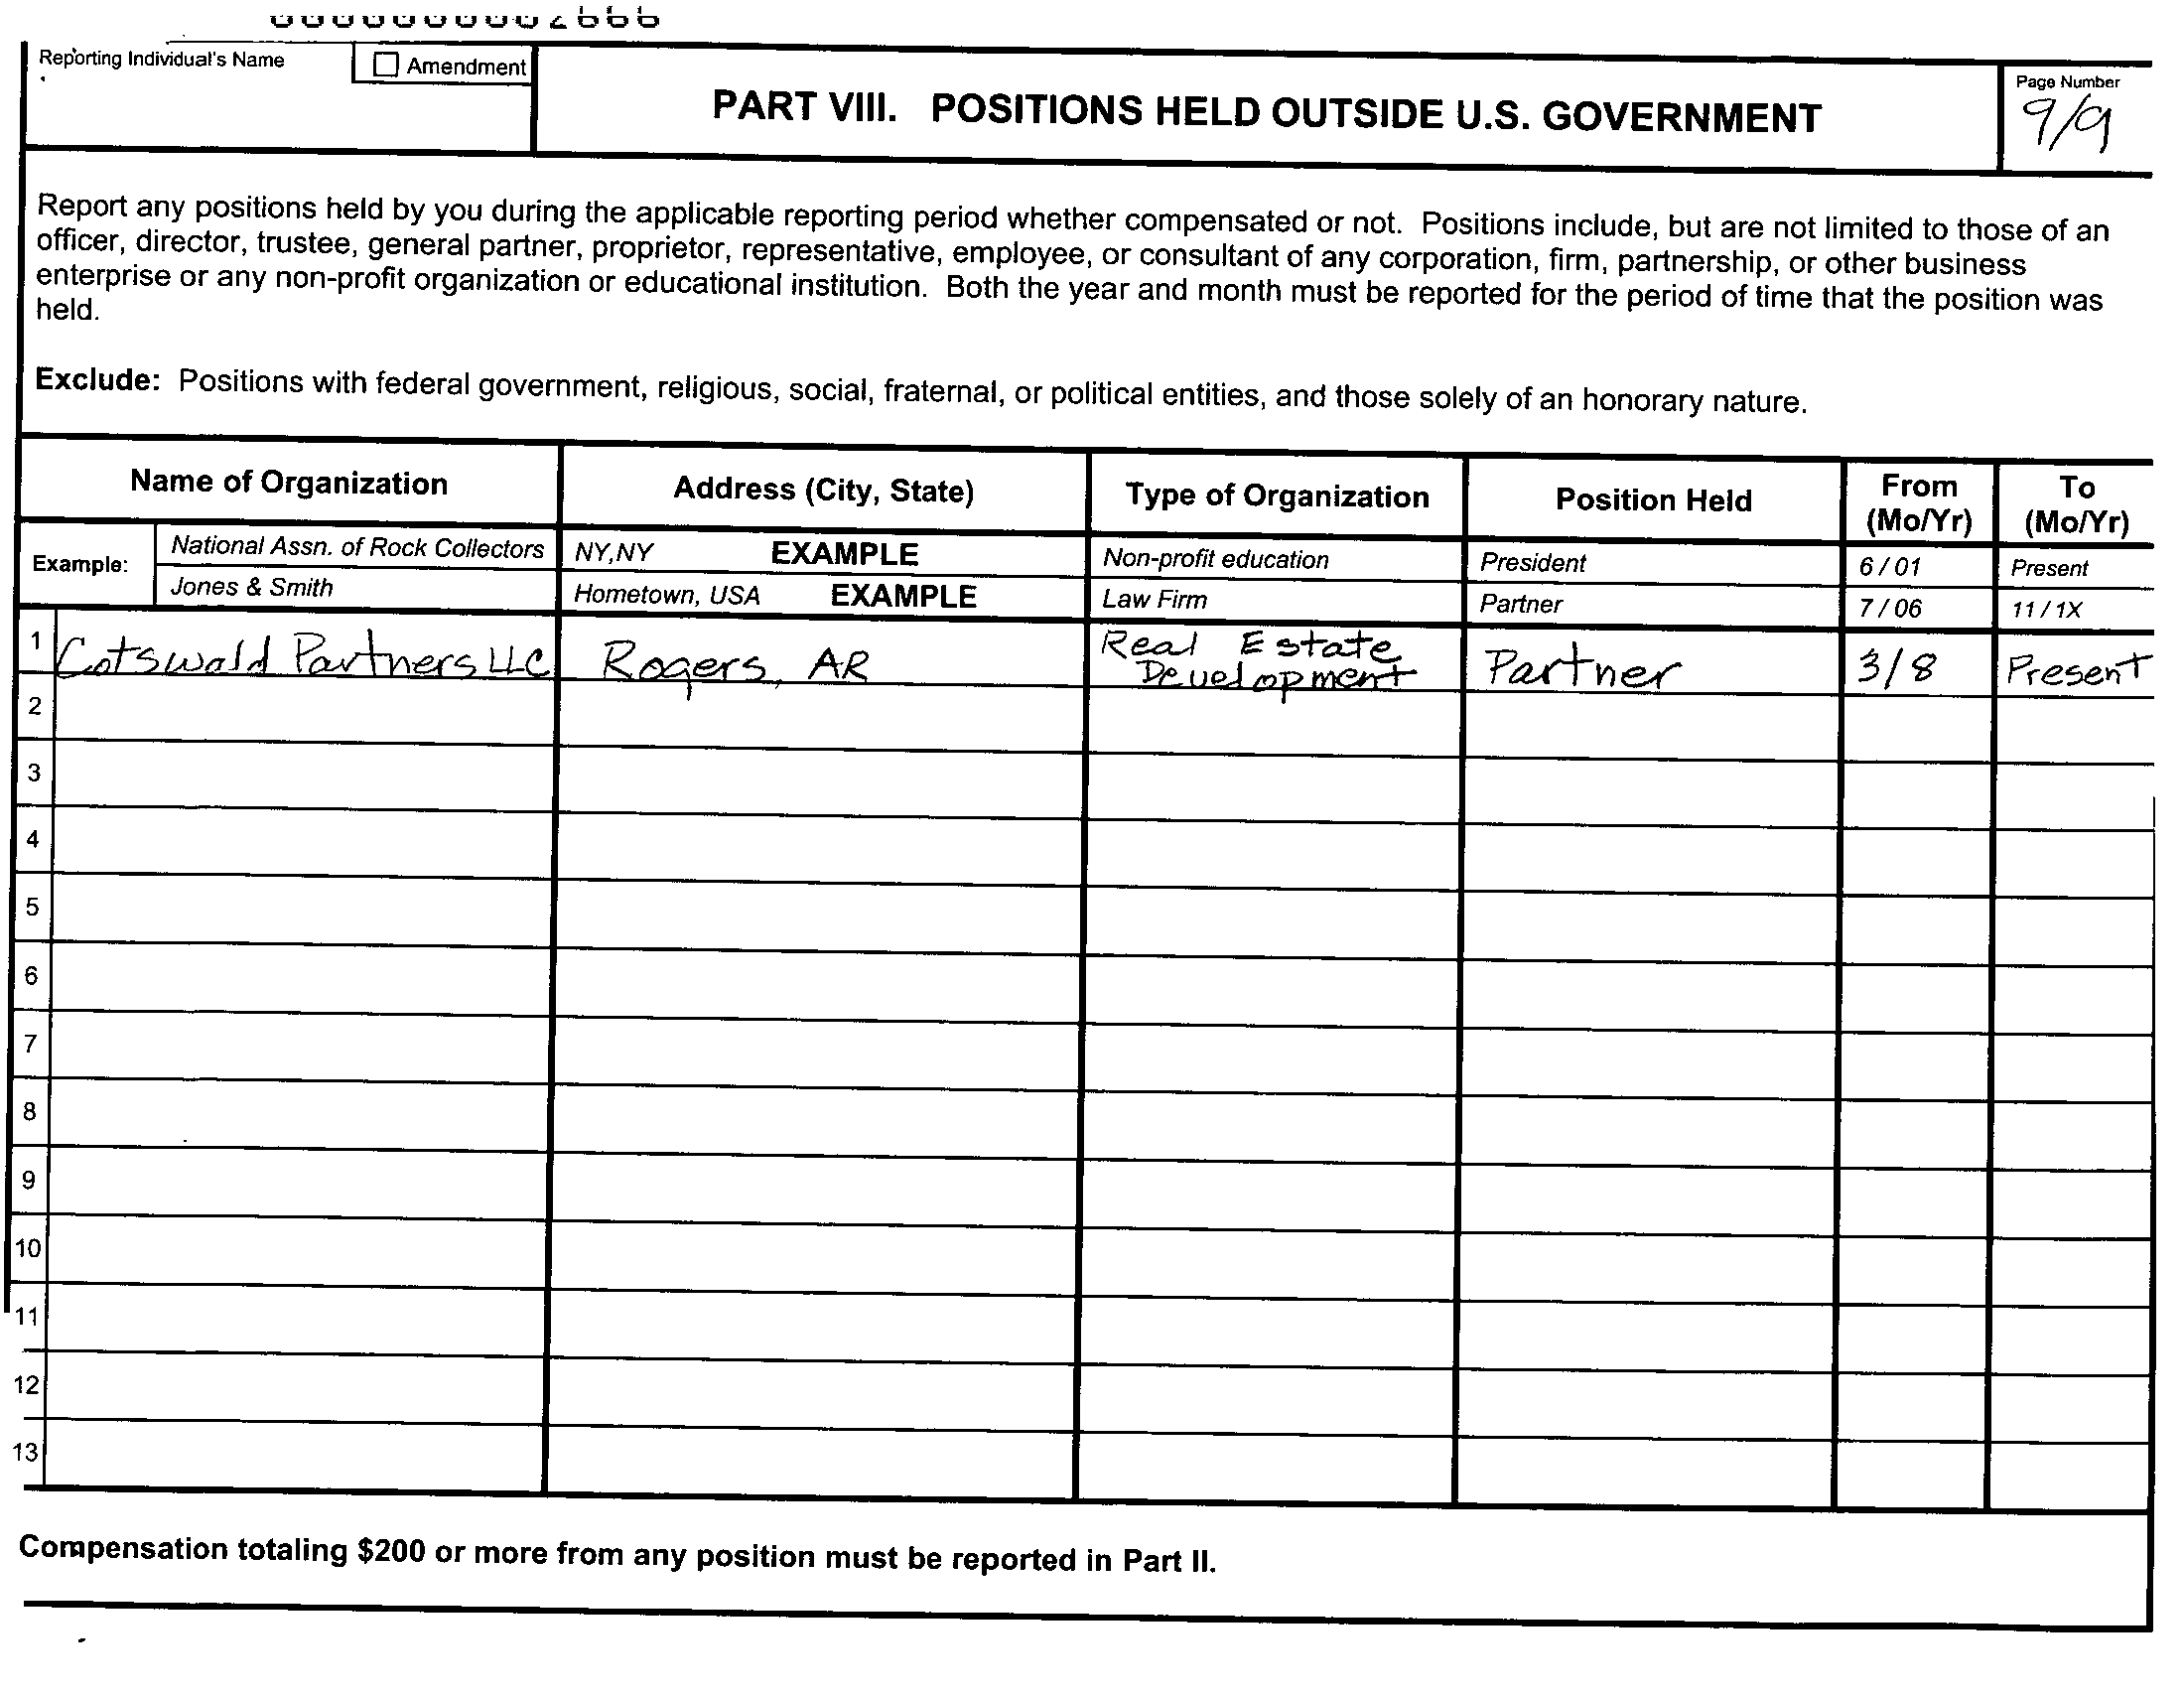 Reporting Individual's Name
Amendment
PART VIII. POSITIONS HELD OUTSIDE U.S. GOVERNMENT
Page Number
9/9
Report any positions held by you during the applicable reporting period whether compensated or not. Positions include, but are not limited to those of an
officer, director, trustee, general partner, proprietor, representative, employee, or consultant of any corporation, firm, partnership, or other business
enterprise or any non-profit organization or educational institution. Both the year and month must be reported for the period of time that the position was
held.
Exclude: Positions with federal government, religious, social, fraternal, or political entities, and those solely of an honorary nature.
Name of Organization Address (City, State) Type of Organization Position Held From (Mo/Yr) To (Mo/Yr)
Example: National Assn. of Rock Collectors NY,NY EXAMPLE Non-profit education President 6 / 01 Present
Jones & Smith Hometown, USA EXAMPLE Law Firm Partner 7 / 06 11 / 1X
1 Cotswald Partners LLC Rogers, AR Real Estate Development Partner 3/8 Present
2
3
4
5
6
7
8
9
10
11
12
13
Compensation totaling $200 or more from any position must be reported in Part II.